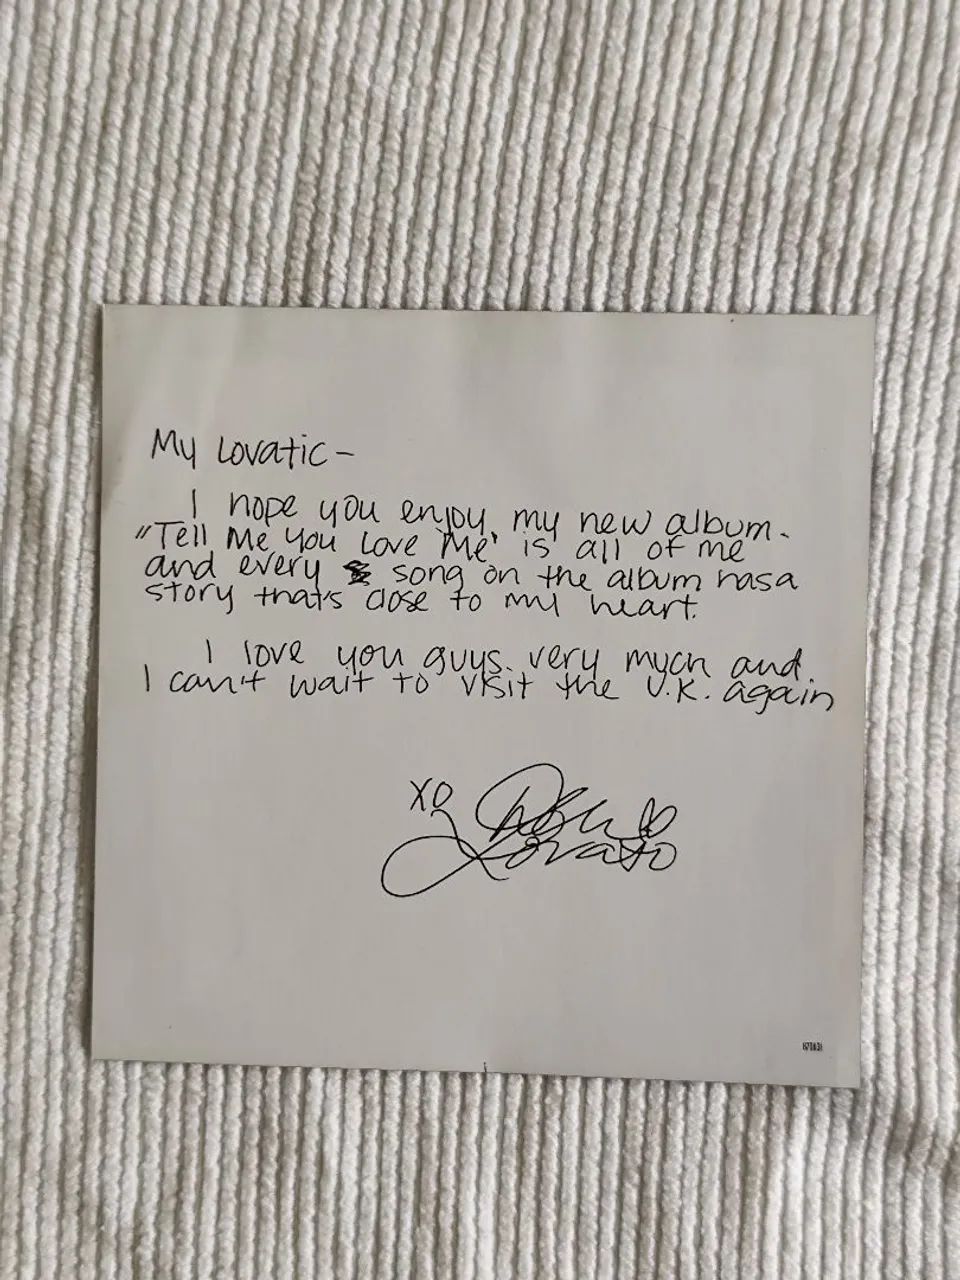 My Lovatic -
I hope you enjoy my new album.
"Tell Me You Love Me" is all of me
and every song on the album has a
story that's close to my heart.
I love you guys very much and
I can't wait to visit the U.K. again
XO
Demi
Lovato